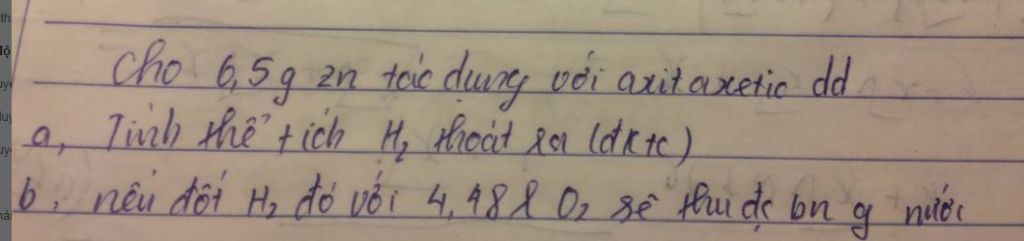 Cho 6,5g zn tác dụng với axit axetic dd
a, Tính thể tích H₂ thoát ra (đktc)
b, nếu đốt H₂ đó với 4,48l O₂ sẽ thu đc bn g nước